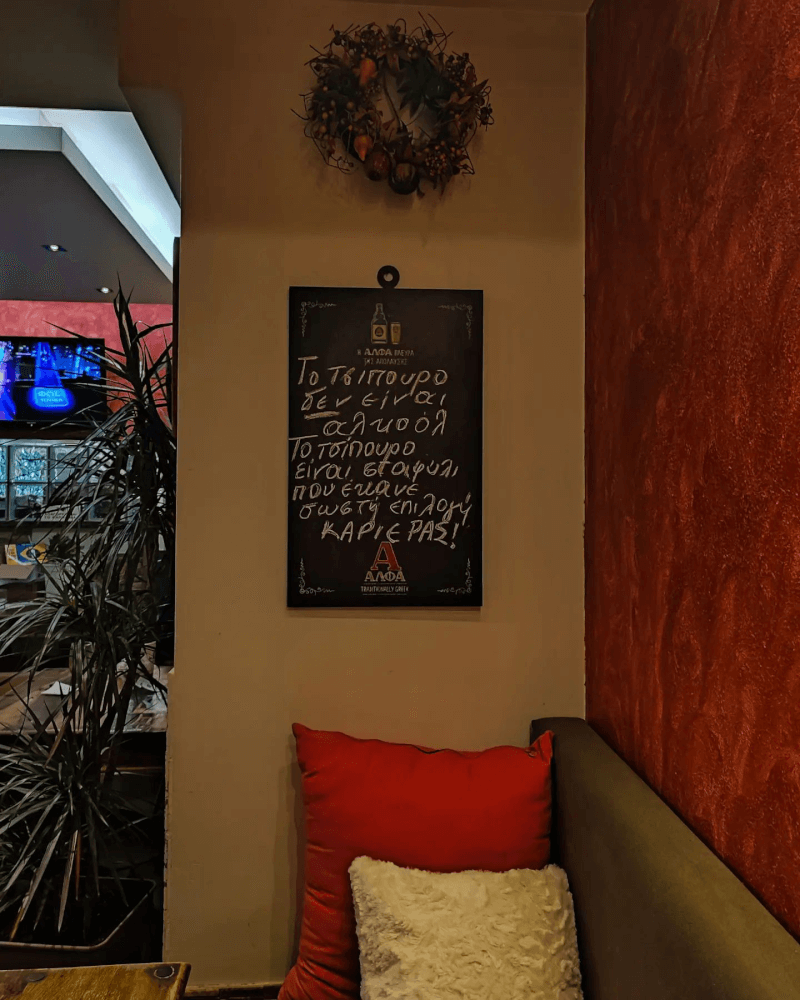 Η ΑΛΦΑ ΠΛΕΥΡΑ
ΤΗΣ ΑΠΟΛΑΥΣΗΣ
Το Τσίπουρο
δεν είναι
αλκοόλ
Το τσίπουρο
είναι σταφύλι
που έκανε
σωστή επιλογή
ΚΑΡΙΕΡΑΣ!
Α
ΑΛΦΑ
TRADITIONALLY GREEK